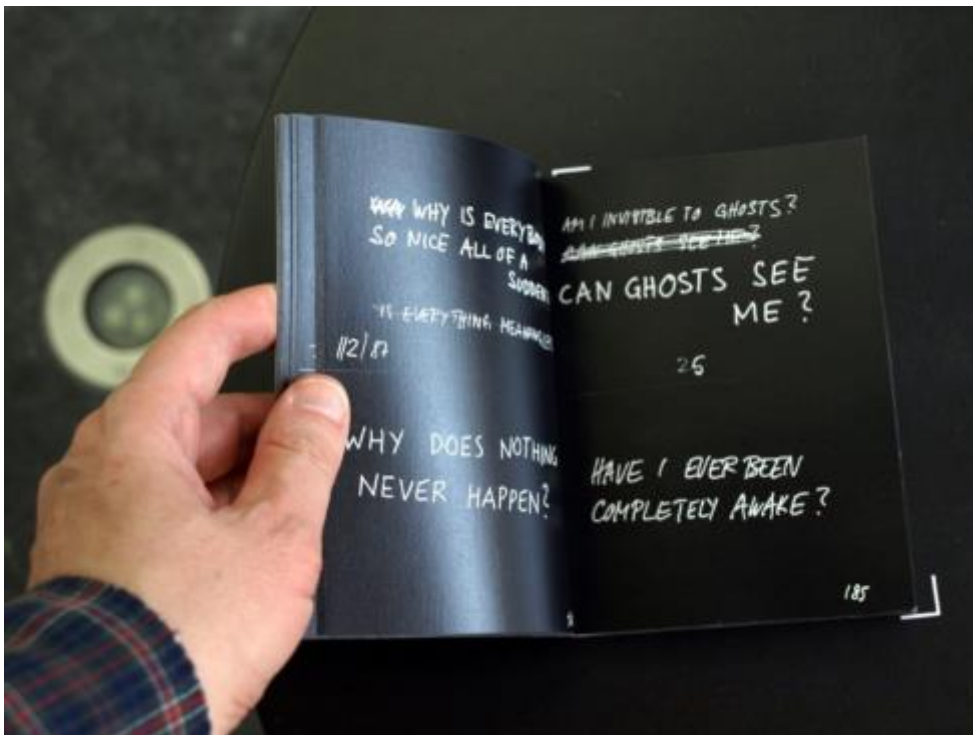 WHY IS EVERYBODY
SO NICE ALL OF A
SUDDEN
IS EVERYTHING MEANINGLESS
112/87
WHY DOES NOTHING
NEVER HAPPEN?
AM I INVISIBLE TO GHOSTS?
CAN GHOSTS SEE ME?
CAN GHOSTS SEE
ME?
26
HAVE I EVER BEEN
COMPLETELY AWAKE?
185